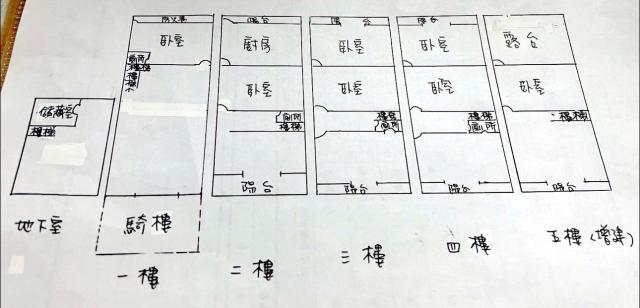 儲藏室
樓梯
地下室
防火巷
臥室
廁所
樓梯
樓梯
騎樓
一樓
陽台
廚房
臥室
廁所
樓梯
陽台
二樓
陽台
臥室
臥室
樓梯
廁所
陽台
三樓
陽台
臥室
臥室
樓梯
廁所
陽台
四樓
露台
臥室
樓梯
陽台
五樓(增建)